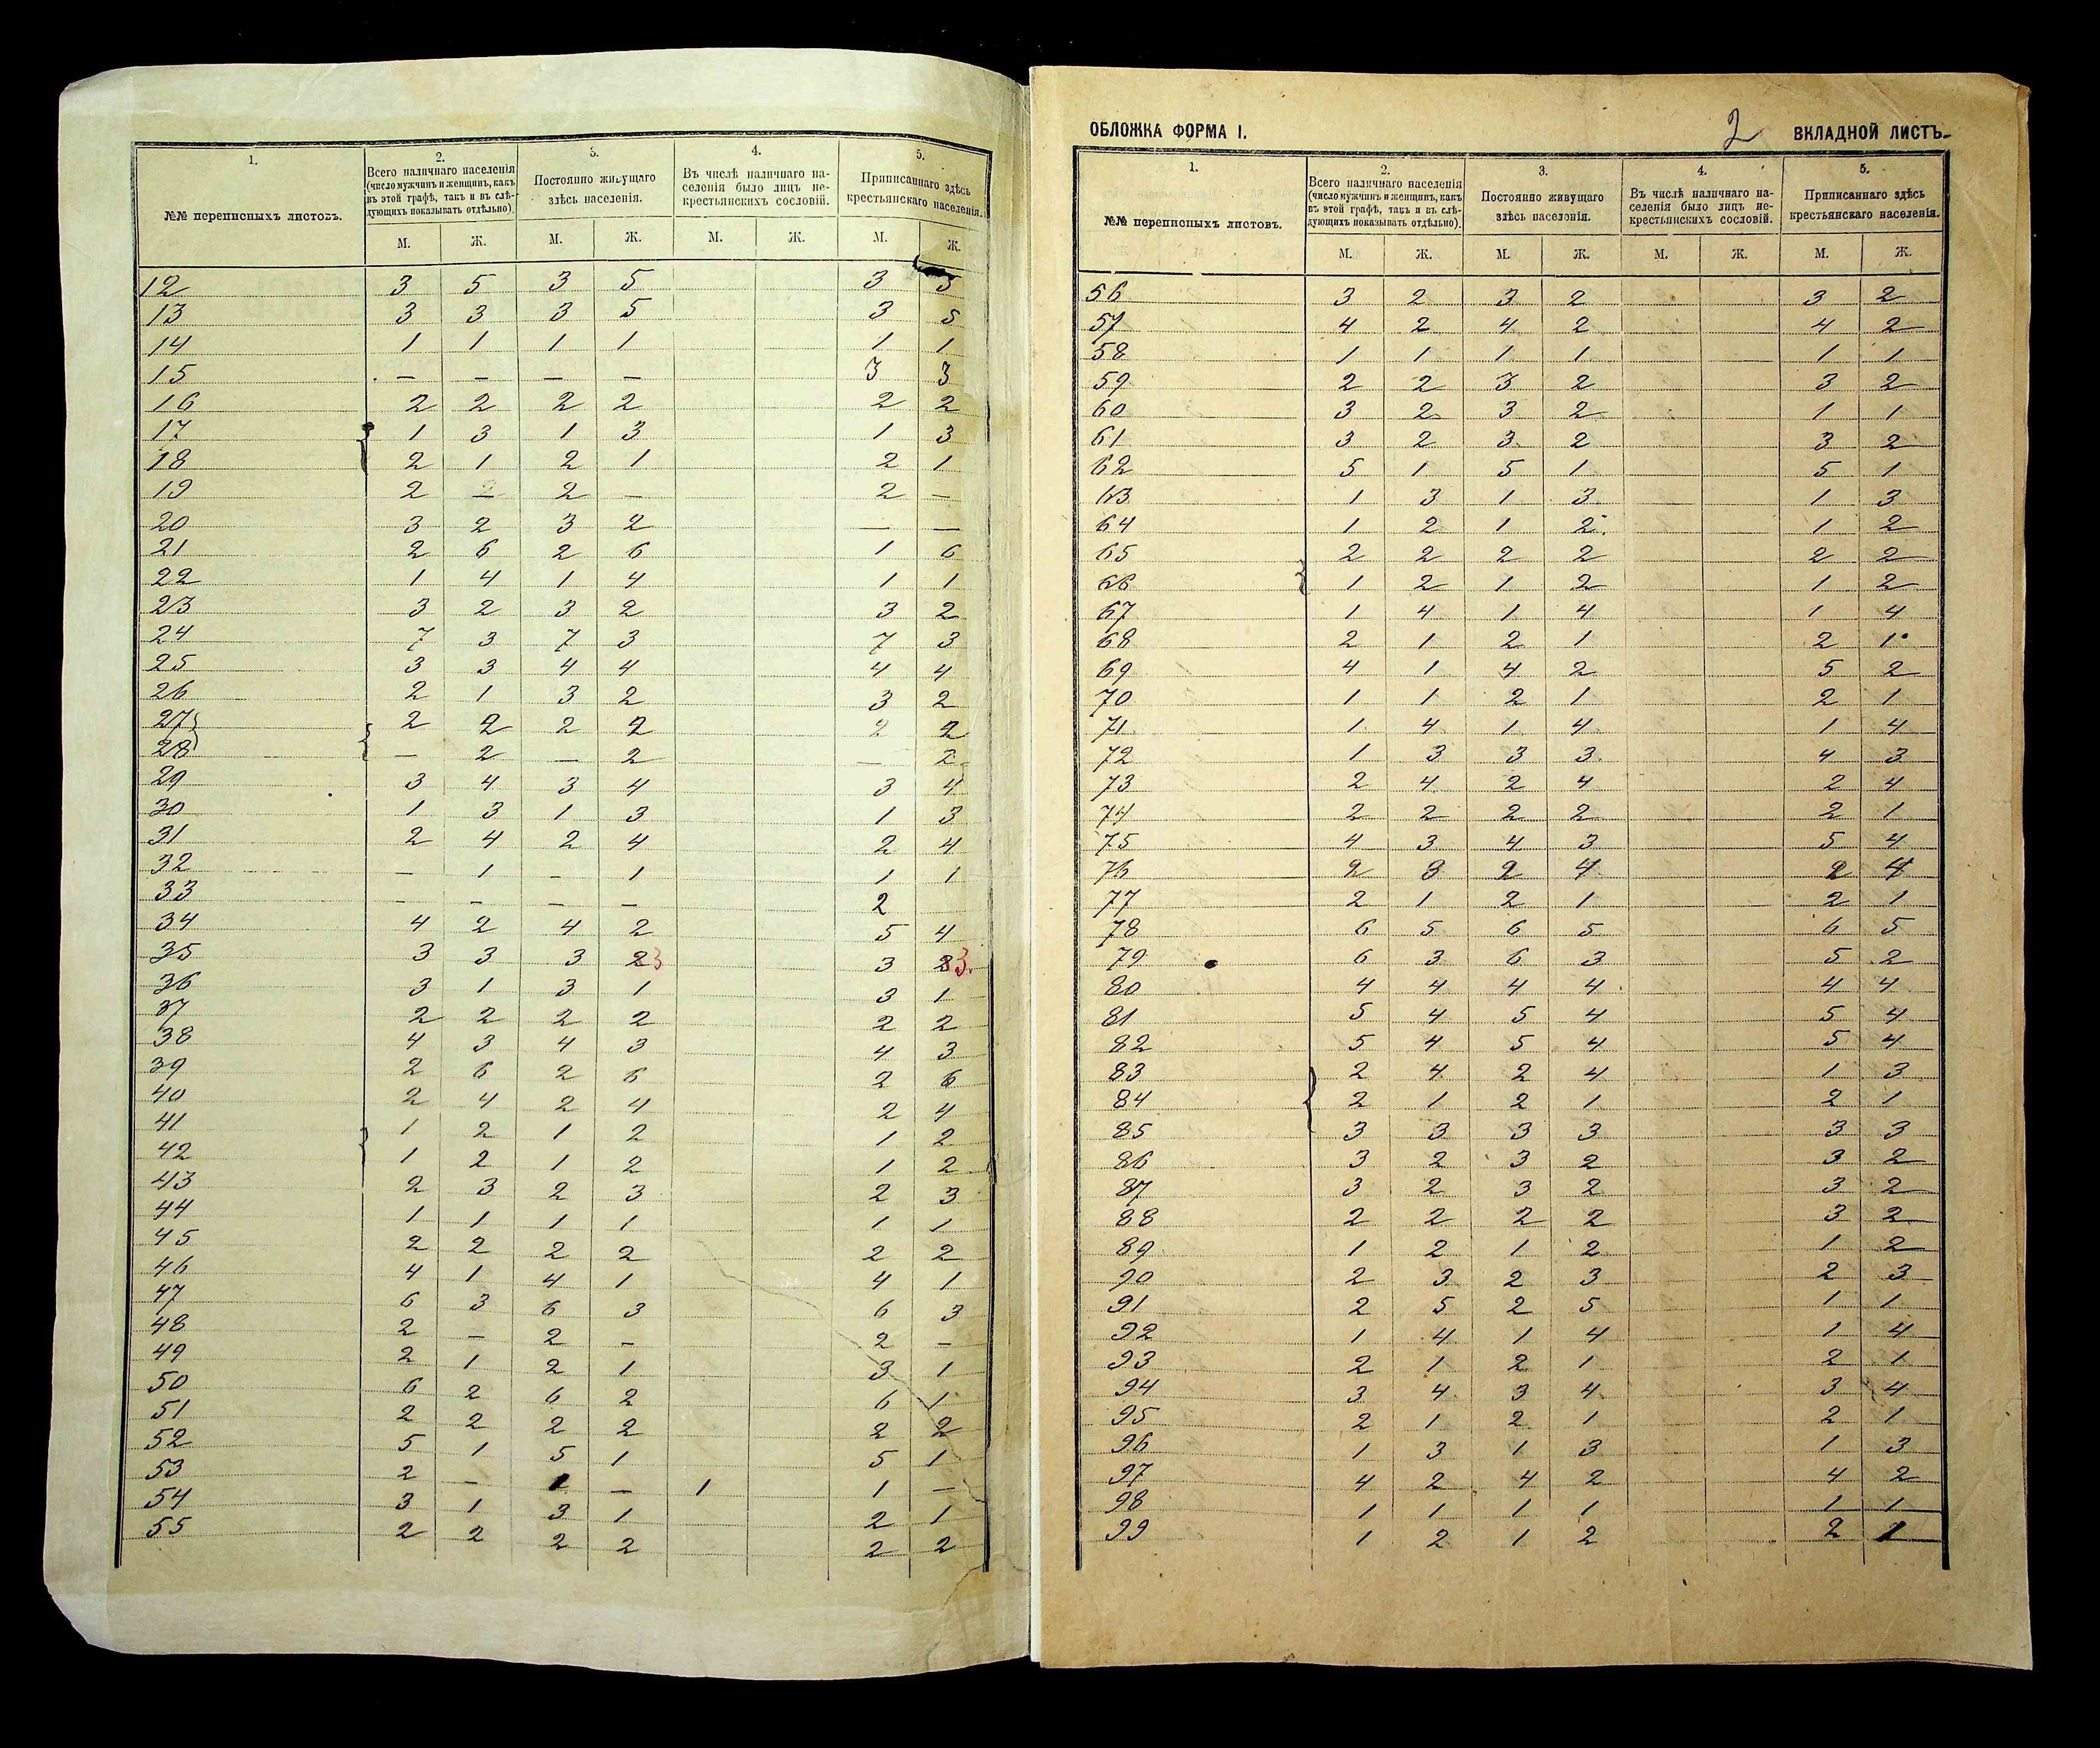 1. 2. 3. 4. 5.
№№ переписныхъ листовъ. Всего наличнаго населенія (число мужчинъ и женщинъ, какъ въ этой графѣ, такъ и въ слѣдующихъ показывать отдѣльно) Постоянно живущаго здѣсь населенія. Въ числѣ наличнаго населенія было лицъ некрестьянскихъ сословій. Приписаннаго здѣсь крестьянскаго населенія.
М. Ж. М. Ж. М. Ж. М. Ж.
12 3 5 3 5 3 5
13 3 3 3 5 3 5
14 1 1 1 1 1 1
15 — — — — 3 3
16 2 2 2 2 2 2
17 1 3 1 3 1 3
18 2 1 2 1 2 1
19 2 — 2 — 2 —
20 3 2 3 2 — —
21 2 6 2 6 1 6
22 1 4 1 4 1 1
23 3 2 3 2 3 2
24 7 3 7 3 7 3
25 3 3 4 4 4 4
26 2 1 3 2 3 2
27 2 2 2 2 2 2
28 — 2 — 2 — 2
29 3 4 3 4 3 4
30 1 3 1 3 1 3
31 2 4 2 4 2 4
32 — 1 — 1 1 1
33 — — — — 2
34 4 2 4 2 5 4
35 3 3 3 23 3 23.
36 3 1 3 1 3 1
37 2 2 2 2 2 2
38 4 3 4 3 4 3
39 2 6 2 6 2 6
40 2 4 2 4 2 4
41 1 2 1 2 1 2
42 1 2 1 2 1 2
43 2 3 2 3 2 3
44 1 1 1 1 1 1
45 2 2 2 2 2 2
46 4 1 4 1 4 1
47 6 3 6 3 6 3
48 2 — 2 — 2 —
49 2 1 2 1 3 1
50 6 2 6 2 6 1
51 2 2 2 2 2 2
52 5 1 5 1 5 1
53 2 — 1 — 1 1 —
54 3 1 3 1 2 1
55 2 2 2 2 2 2
ОБЛОЖКА ФОРМА I. 2 ВКЛАДНОЙ ЛИСТЪ
1. 2. 3. 4. 5.
№№ переписныхъ листовъ. Всего наличнаго населенія (число мужчинъ и женщинъ, какъ въ этой графѣ, такъ и въ слѣдующихъ показывать отдѣльно). Постоянно живущаго здѣсь населенія. Въ числѣ наличнаго населенія было лицъ некрестьянскихъ сословій. Приписаннаго здѣсь крестьянскаго населенія.
М. Ж. М. Ж. М. Ж. М. Ж.
56 3 2 3 2 3 2
57 4 2 4 2 4 2
58 1 1 1 1 1 1
59 2 2 3 2 3 2
60 3 2 3 2 1 1
61 3 2 3 2 3 2
62 5 1 5 1 5 1
63 1 3 1 3 1 3
64 1 2 1 2 1 2
65 2 2 2 2 2 2
66 1 2 1 2 1 2
67 1 4 1 4 1 4
68 2 1 2 1 2 1
69 4 1 4 2 5 2
70 1 1 2 1 2 1
71 1 4 1 4 1 4
72 1 3 3 3 4 3
73 2 4 2 4 2 4
74 2 2 2 2 2 1
75 4 3 4 3 5 4
76 2 3 2 4 2 4
77 2 1 2 1 2 1
78 6 5 6 5 6 5
79 6 3 6 3 5 2
80 4 4 4 4 4 4
81 5 4 5 4 5 4
82 5 4 5 4 5 4
83 2 4 2 4 1 3
84 2 1 2 1 2 1
85 3 3 3 3 3 3
86 3 2 3 2 3 2
87 3 2 3 2 3 2
88 2 2 2 2 3 2
89 1 2 1 2 1 2
90 2 3 2 3 2 3
91 2 5 2 5 1 1
92 1 4 1 4 1 4
93 2 1 2 1 2 1
94 3 4 3 4 3 4
95 2 1 2 1 2 1
96 1 3 1 3 1 3
97 4 2 4 2 4 2
98 1 1 1 1 1 1
99 1 2 1 2 2 1